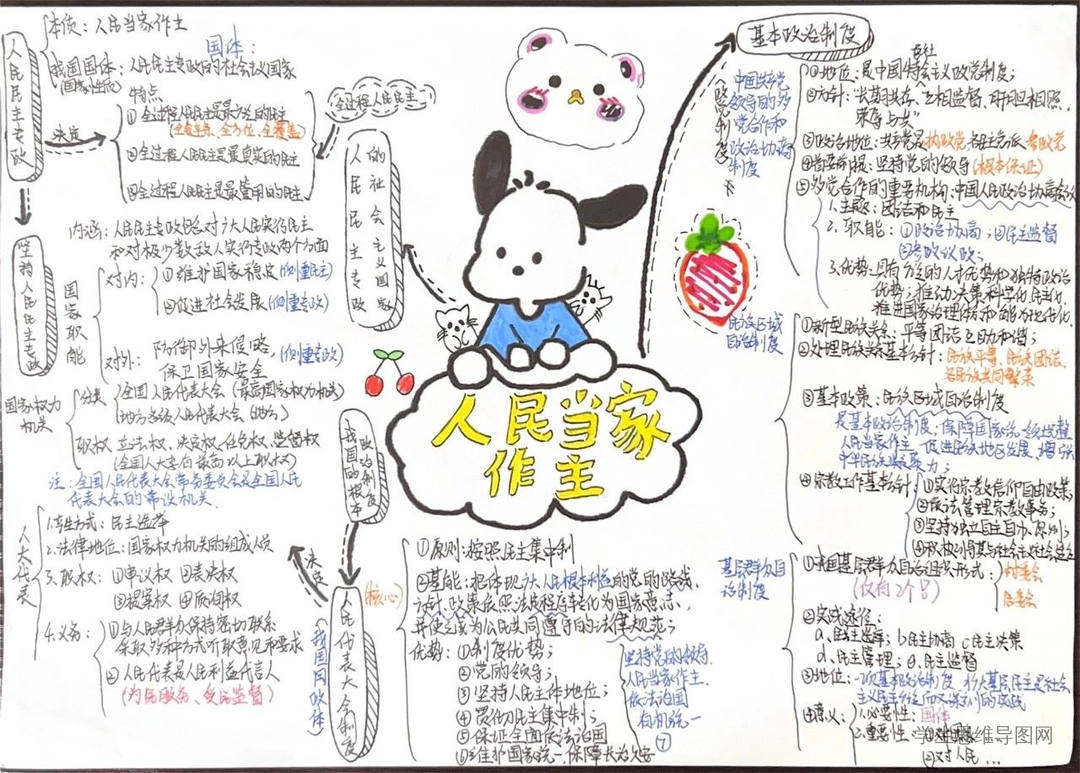 人民当家作主
人民民主专政
本质：人民当家作主
国体：
我国国体：人民民主专政的社会主义国家
(国家性质)
决定
特点
①全过程人民民主是最广泛的民主
(全链条、全方位、全覆盖)
②全过程人民民主是最真实的民主
③全过程人民民主是最管用的民主
全过程人民民主
人民民主专政
的社会主义国家
坚持人民民主专政
内涵：人民民主专政
对占人民实行民主
和对极少数敌人实行专政两个方面
国家职能
对内：
①维护国家稳定(侧重民主)
②促进社会发展(侧重专政)
对外：
防御外来侵略，
保卫国家安全
(侧重专政)
国家权力
机关
分类
全国人民代表大会(最高国家权力机关)
地方各级人民代表大会(地方)
职权
立法权、决定权、任免权、监督权
(全国人大享有最高以上职权)
注：全国人民代表大会常务委员会是全国人民
代表大会的常设机关
人大代表
1.产生方式：民主选举
2.法律地位：国家权力机关的组成人员
3.职权：①审议权 ②表决权
③提案权 ④质询权
4.义务：
①与人民群众保持密切联系
采取多种方式听取意见和要求
②人民代表是人民利益代言人
(为民服务、受民监督)
我国的根本
政治制度
决定
人民代表大会制度
(我国国政体)
①原则：按照民主集中制
(核心)
优势：①制度优势；
②党的领导；
③坚持人民主体地位；
④贯彻民主集中制；
⑤保证全面依法治国
⑥维护国家统一，保障长治久安
坚持党的领导、
人民当家作主、
依法治国
有机统一
⑦
基本政治制度
中国共产党
领导的多
党合作和
政治协商
制度
①地位：是中国特色社会主义政党制度；
②方针：“长期共存、互相监督、肝胆相照、
荣辱与共”
③政治地位：共产党是执政党，各民主党派：参政党
④首要前提：坚持党的领导(根本保证)
⑤多党合作的重要机构：中国人民政治协商会议
1.主题：团结和民主
2.职能：①政治协商；②民主监督
③参政议政；
3.优势：
优势；推动决策科学化民主化，
推进国家治理体系和能力现代化
民族区域
自治制度
①新型民族关系：平等团结互助和谐；
②处理民族关系基本方针：民族平等、民族团结、
各民族共同繁荣
③基本政策：民族区域自治制度
是基本政治制度；保障国家统一
人民当家作主，促进民族地区发展；
④宗教工作基本方针：
①实行宗教信仰自由政策；
②依法管理宗教事务；
③坚持独立自主自办原则；
基层群众自
治制度
①我国基层群众自治组织形式：
(仅有2个)
村委会
居委会
②实践途径：
a.民主选举；b.民主协商 c.民主决策
d.民主管理；e.民主监督
③地位：一项基本政治制度
④意义：
1.必要性：国体
2.重要性：
②对人民…
维导图网